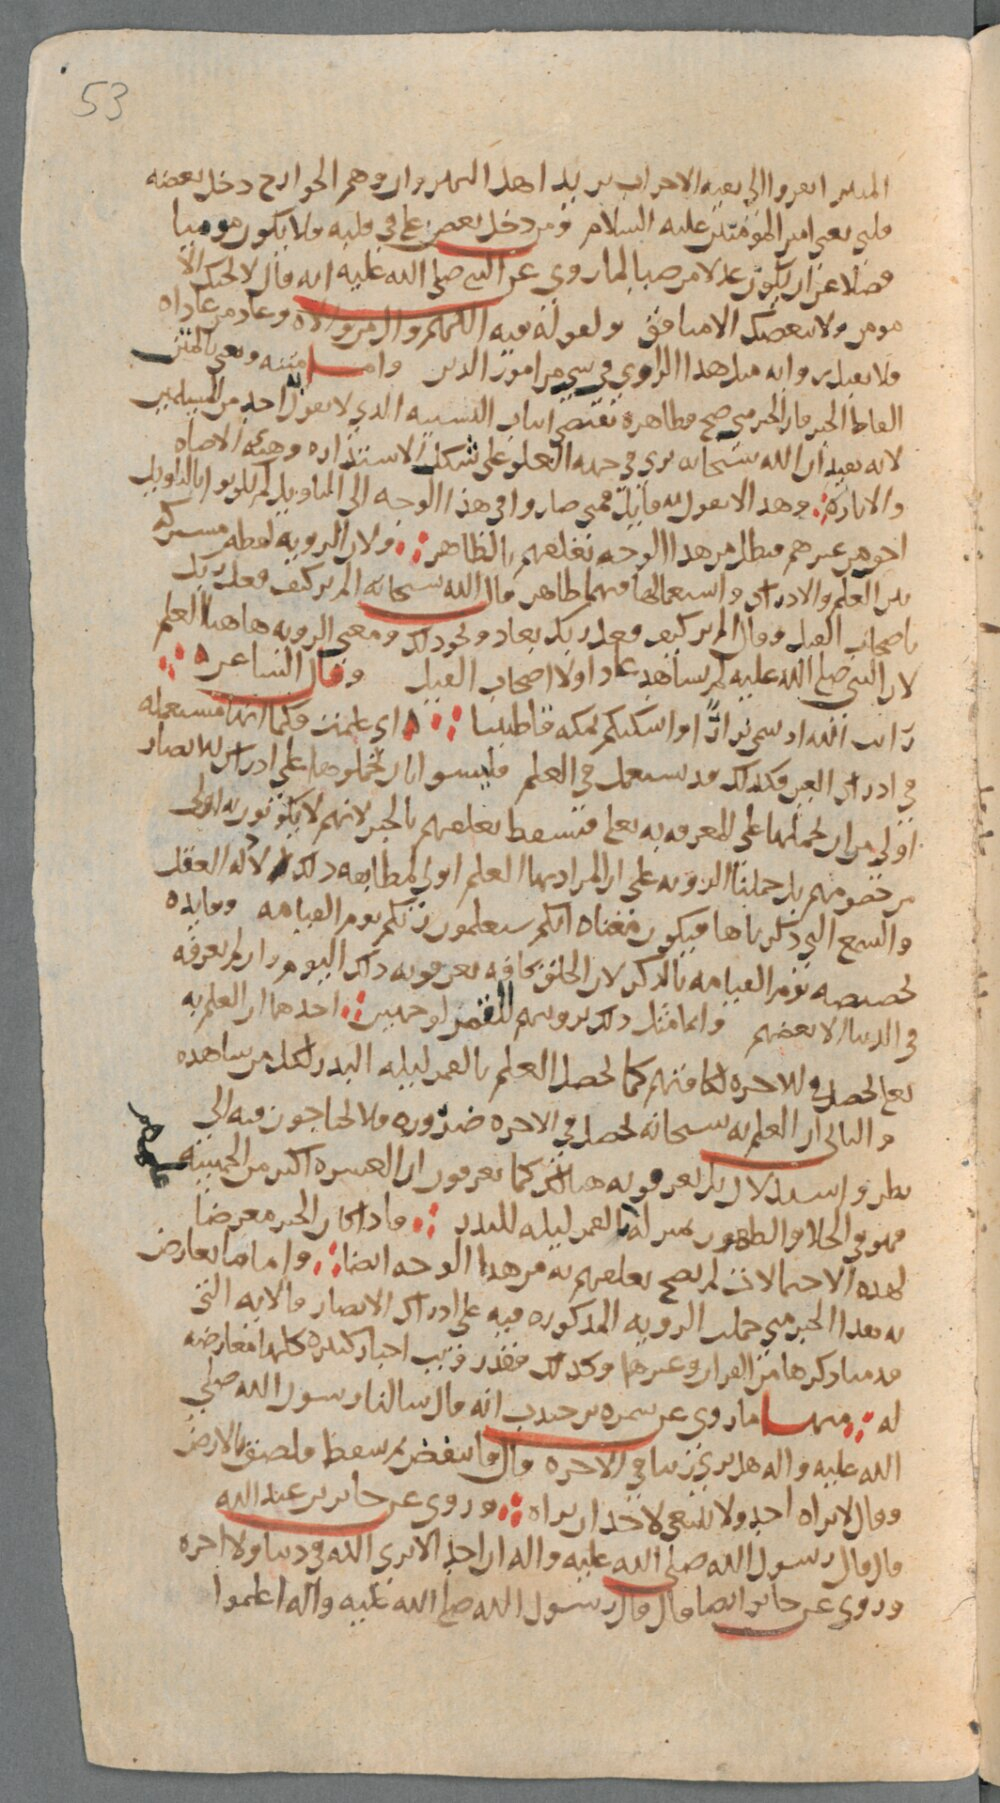 53
المنبر انفروا الى بقية الاحزاب يريد اهل النهروان وهم الخوارج دخل بغضه
قلبي يعني امير المؤمنين عليه السلام ومن دخل بغض علي في قلبه فلا يكون مومنا
فضلا عن ان يكون عدلا مرضيا لما روي عن النبي صلى الله عليه انه قال لا يحبك الا
مومن ولا يبغضك الا منافق ولقوله فيه اللهم وال من والاه وعاد من عاداه
فلا يقبل رواية مثل هذا الراوي في شي من امور الدين واما متنه ونعني بالمتن
الفاظ الخبر فان الخبر متى صح فظاهره يقتضي اثبات التشبيه الذي لا يقول به احد من المسلمين
لانه يفيد ان الله سبحانه يرى في جهة العلو على شكل الاستدارة وهيئة الاضاه
والانارة وهذا لا يقول به قايل فمتى صاروا في هذا الوجه الى التاويل لم يكونوا بالتاويل
احق من غيرهم فبطل من هذا الوجه تعلقهم بالظاهر ولان الروية لفظة مشتركة
بين العلم والادراك واستعمالها فيهما ظاهر قال الله سبحانه الم تر كيف فعل ربك
باصحاب الفيل وقال الم تر كيف فعل ربك بعاد ونحو ذلك ومعنى الروية هاهنا العلم
لان النبي صلى الله عليه لم يشاهد عادا ولا اصحاب الفيل وقال الشاعر
رايت الله اذ سمى نزارا واسكنكم بمكة قاطنينا اي علمت فكما انها مستعملة
في ادراك العين فكذلك قد تستعمل في العلم فليسوا بان يحملوها على ادراك الابصار
اولى من ان نحملها على المعرفة به تعالى فسقط تعلقهم بالخبر لانهم لا يكونون به اولى
من خصومهم بل حملنا الروية على ان المراد بها العلم اولى لمطابقة ذلك لادلة العقل
والسمع التي ذكرناها فيكون معناه انكم ستعلمون ربكم يوم القيامة وفايدة
تخصيصه يوم القيامة بالذكر لان الخلق كافة يعرفونه ذلك اليوم وان لم يعرفه
في الدنيا الا بعضهم وانما مثل ذلك برويتهم للقمر لوجهين احدهما ان العلم به
تعالى يحصل في الاخرة لكافتهم كما يحصل العلم بالقمر ليلة البدر لكل من شاهده
والثاني ان العلم به سبحانه يحصل في الاخرة ضرورة فلا يحتاجون فيه الى
نظر واستدلال بل يعرفونه هنالك كما يعرفون ان العشرة اكثر من الخمسة
فهو في الجلا والظهور بمنزلة القمر ليلة البدر فاذا كان الخبر معرضا
لهذه الاحتمالات لم يصح تعلقهم به من هذا الوجه ايضا واما ما يعارض
به هذا الخبر متى حملت الروية المذكورة فيه على ادراك الابصار فالايه التي
قدمنا ذكرها من القران وغيرها وكذلك فقد رويت اخبار كثيرة كلها معارضة
له منها ما روي عن سمرة بن جندب انه قال سالنا رسول الله صلى
الله عليه واله هل نرى ربنا في الاخرة قال فانتفض ثم سقط فلصق بالارض
وقال لا يراه احد ولا ينبغي لاحد ان يراه وروي عن جابر بن عبد الله
قال قال رسول الله صلى الله عليه واله ان احدا لا يرى الله في دنيا ولا اخرة
وروي عن جابر ايضا قال قال رسول الله صلى الله عليه واله اعلموا